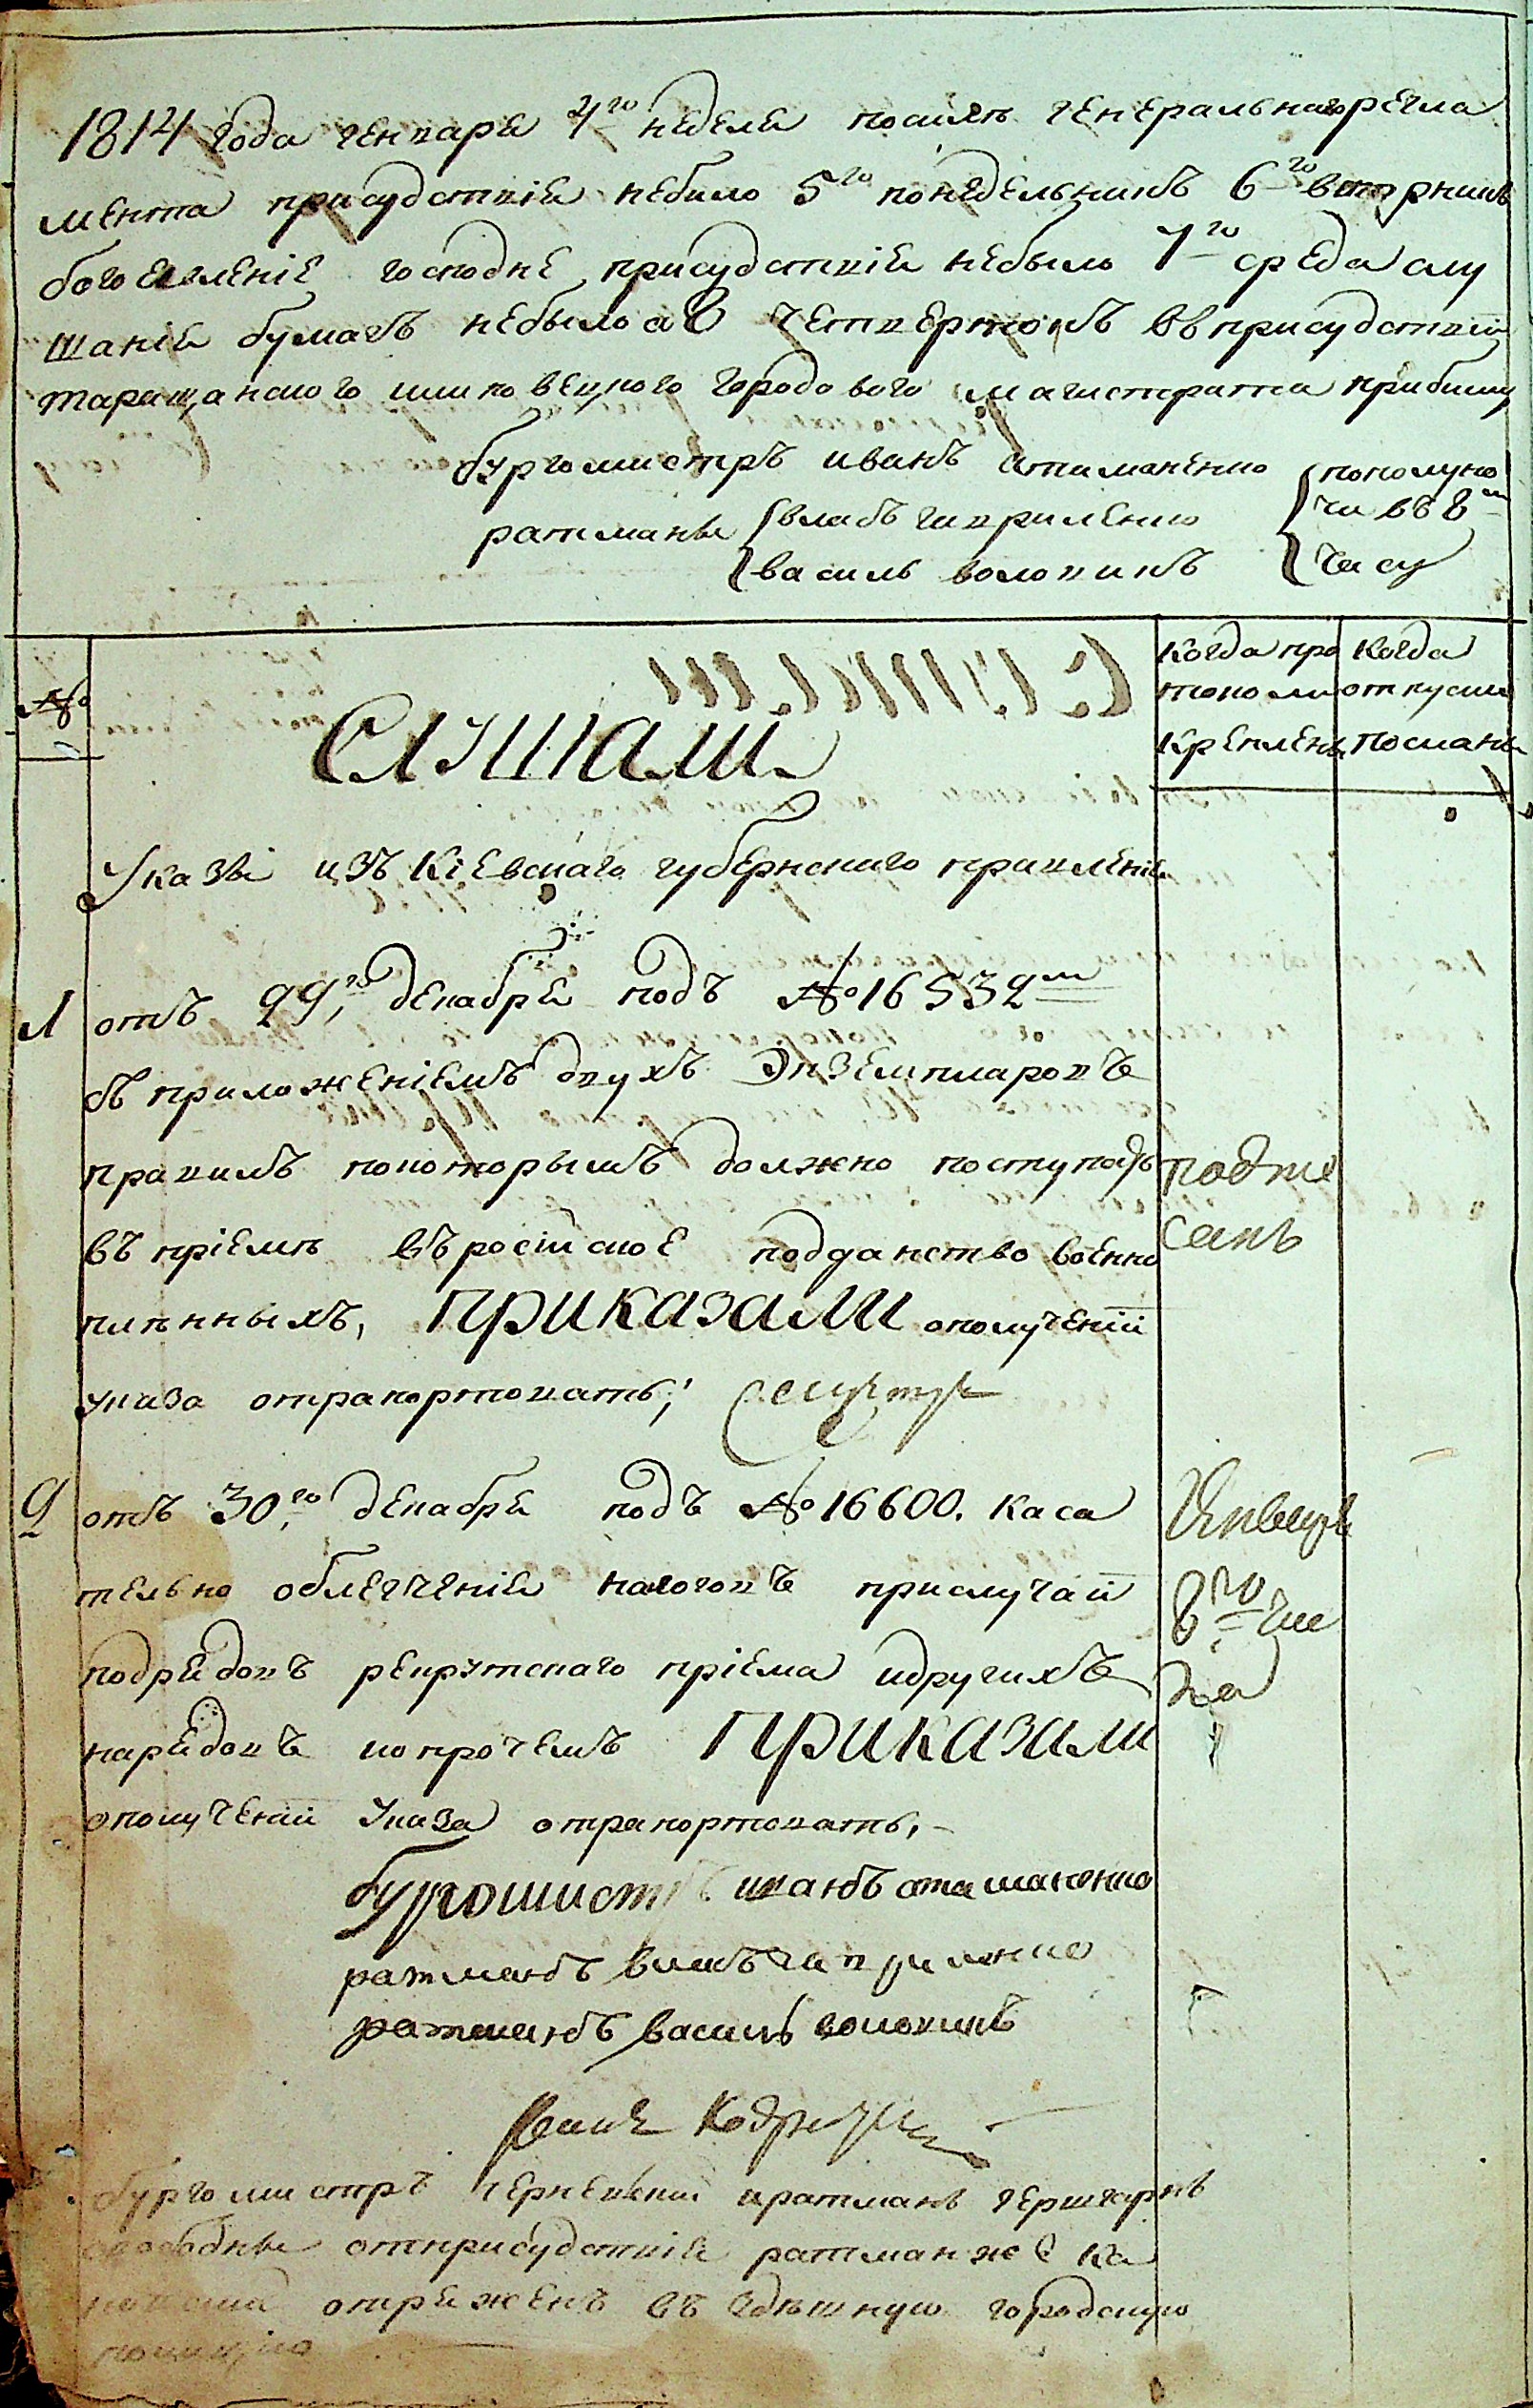 1814 года генваря 4го неделя посилѣ генеральнаго регла
мента присудствія небило 5го понедѣльникъ 6го вторникъ
богоявленіе господнє присудствія небыло 7го среда слу
шанія бумагъ небыло а 8 четвертокъ въ присудствіи
таращанского шляповецкого городового магистрата прибыли
бургомистръ иванъ атаманенко
пополуно
ратманы
власъ гавриленко
чи въ 8м
василь воловикъ
часу
№
Слушали
Когда про
токолъ
крепленъ
Когда
отпуски
посланы
Указы изъ Кіевскаго губернскаго правленія
1 отъ 29го декабря подъ №16532м
съ приложеніемъ двухъ экземпляровъ
правилъ покоторымъ должно поступать
въ пріемѣ въ російскоє подданство военно
плѣнныхъ, приказали ополученіи
указа отрапортовать;
подпи
санъ
2 отъ 30го декабря подъ №16600. каса
тельно облегченія налоговъ прислучаи
подрядовъ рекрутскаго пріема идругихъ
нарядовъ ипрочемъ приказали
ополученіи указа отрапортовать,
Генваря
8го чис
ла
бургомистръ иванъ атаманенко
ратманъ власъ гавриленко
ратманъ василь воловикъ
бургомистръ иратманъ
свободны отприсудствія ратманже
отряженъ въ здѣшную городскую
полицію